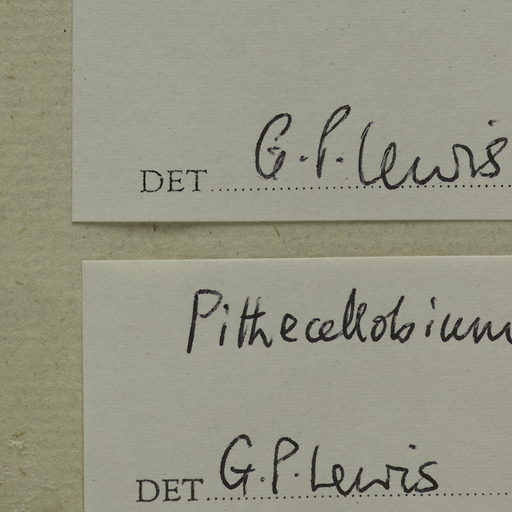 DET G.P. Lewis
Pithecellobium
DET G.P. Lewis